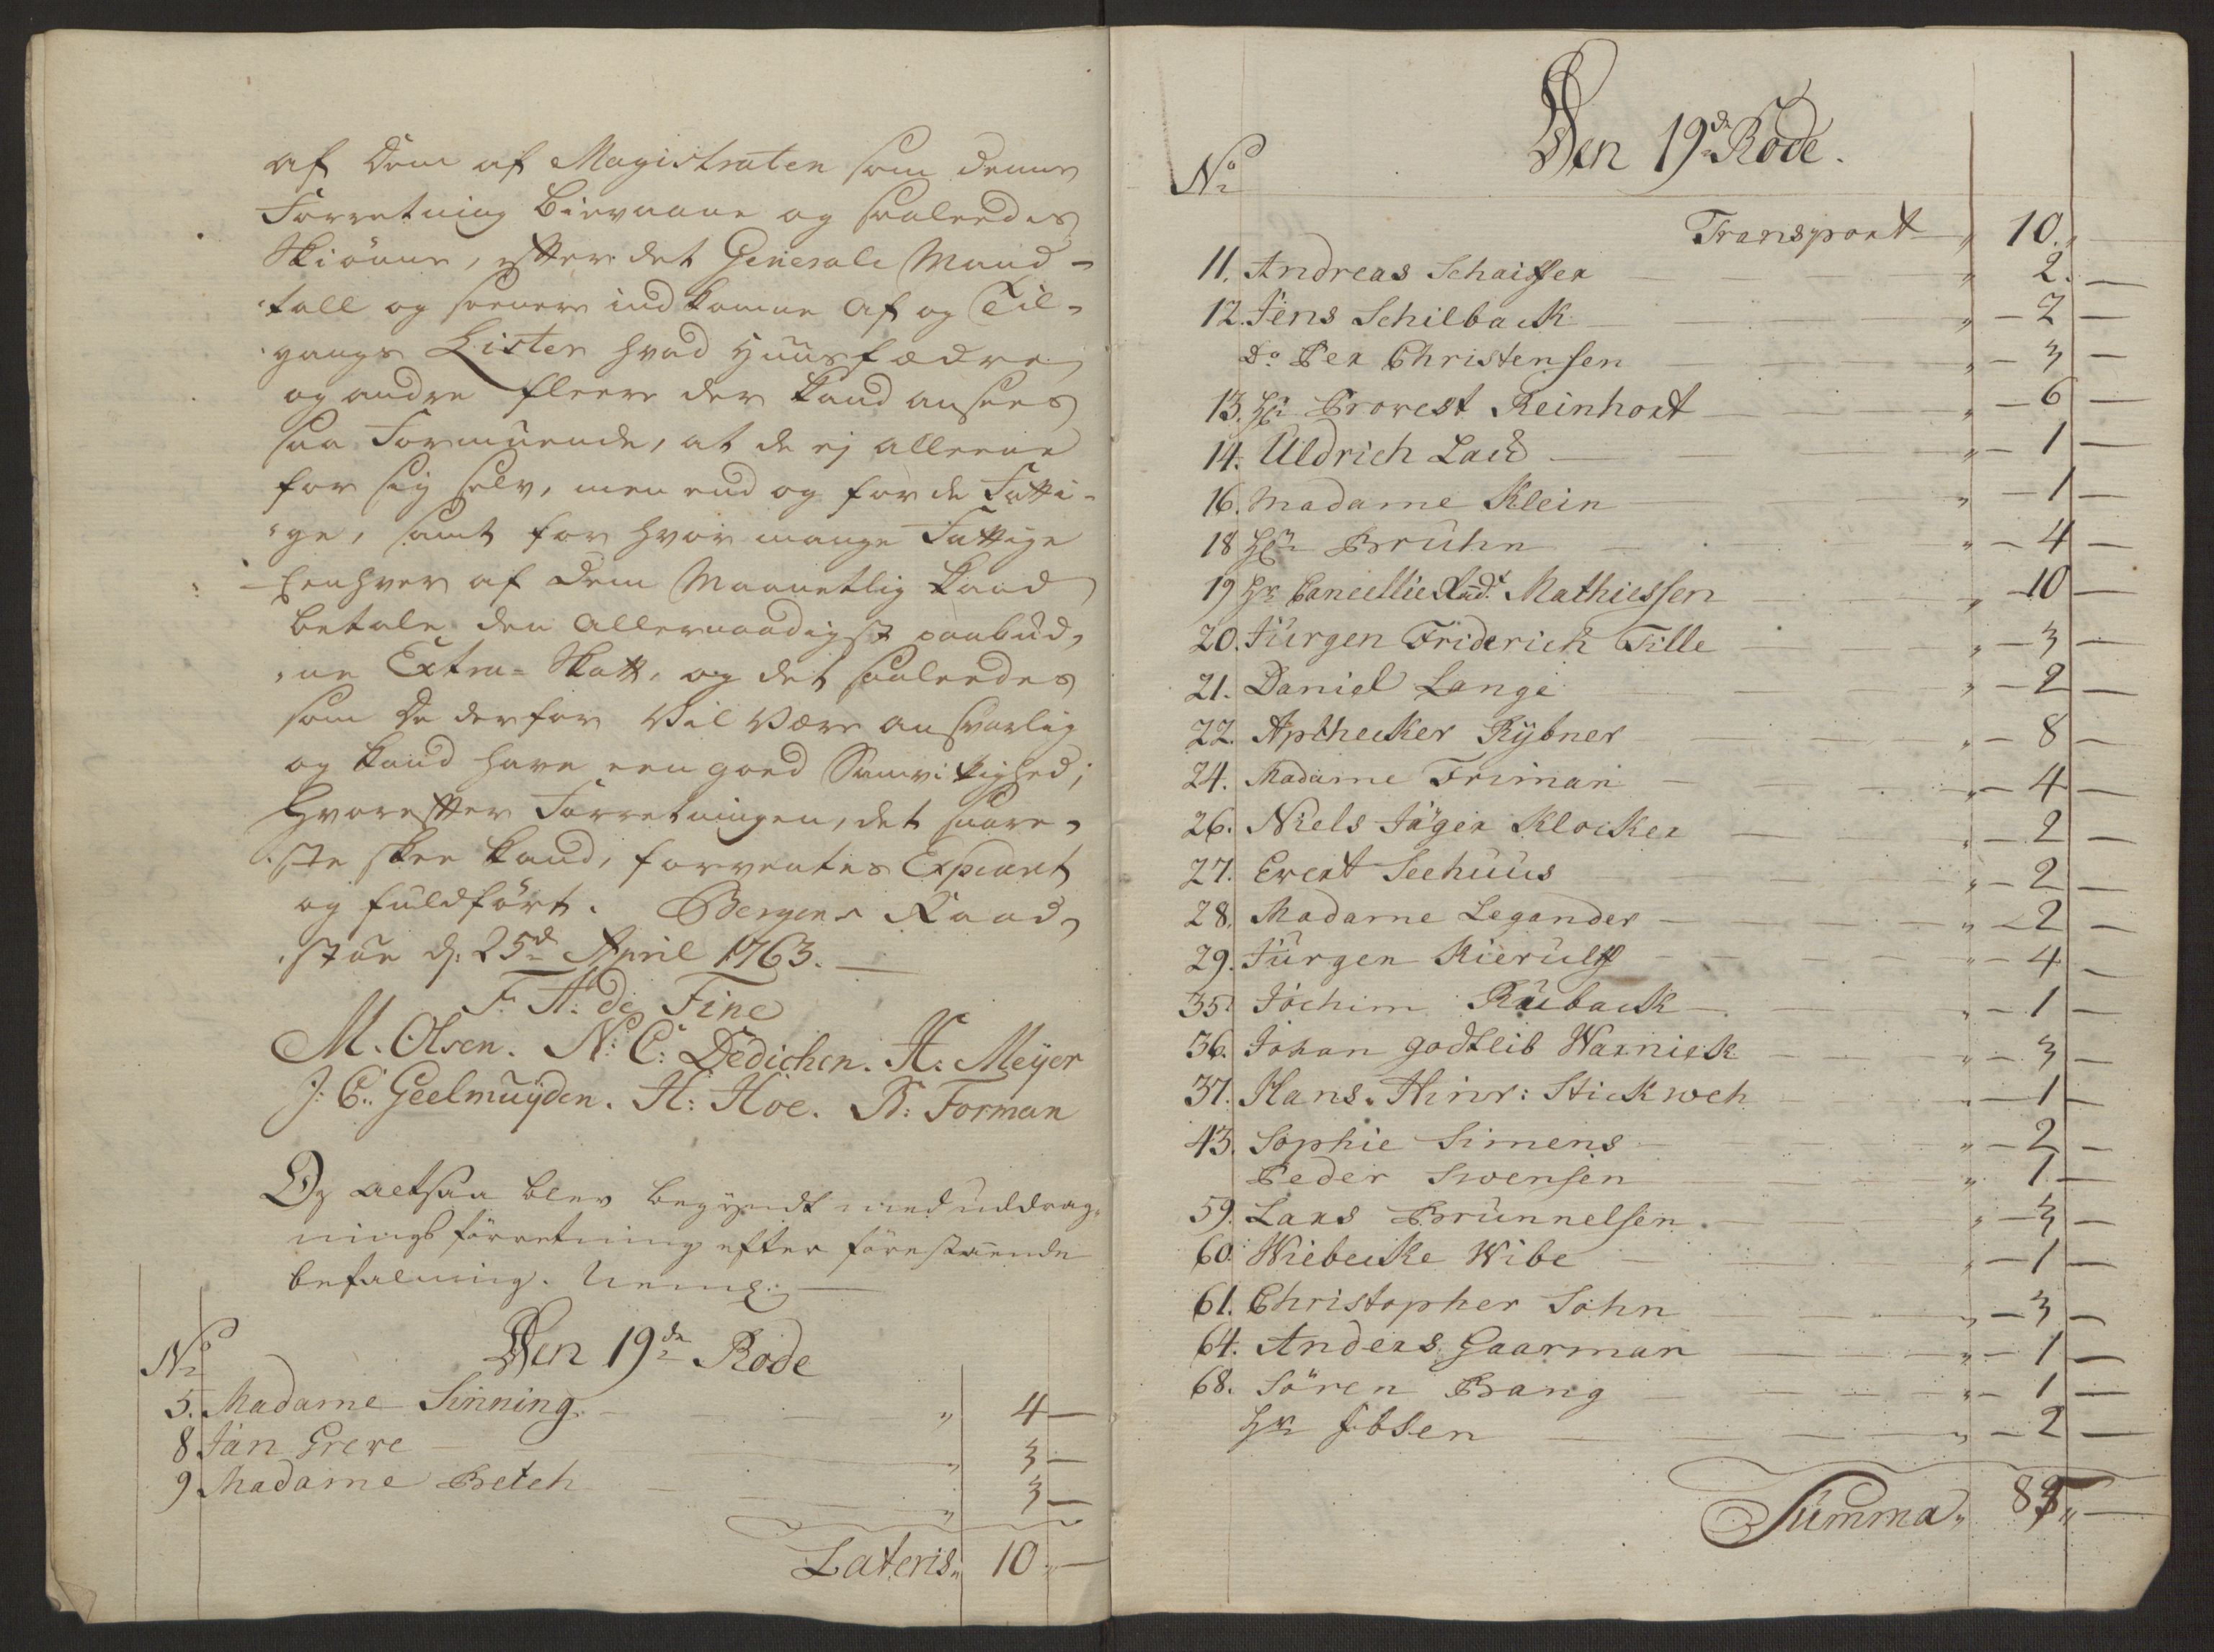 af dem af Magistraten som denne
Forretning bievaane og saaleedes
Skiönne, efter det Generale Mand-
tall og seenere indkomne Af og Til-
gangs Lister hvad Huusfædre
og andre fleere der kand ansees
saa Formuende, at de ej alleene
for sig selv, men end og for de Fatti-
ge, samt for hvor mange Fattige
Eenhver af dem Maanetlig kand
betale den allernaadigst paabud,
ne Extra-Skatt, og det saaleedes
som De derfor vil være ansvarlig
og kand have een goed Samvittighed;
Hvorefter Forretningen, det snare-
ste skee kand, forventes Expedert
og fuldfört. Bergens Raad,
stue d: 25de April 1763.
F. H: de Fine
M. Olsen. N: C: Dedichen. H: Meÿer
J: C: Geelmuÿden. H: Hoe. B: Forman
Og altsaa blev begÿndt med uddrag,
nings forretning efter forestaaende
befalning. Neml:
No Den 19de Rode
5. Madame Sinning " 4 —
8 Jan Greve " 3 —
9 Madame Betch " 3 —
Lateris " 10 " —
Den 19de Rode.
No
Transport " 10 " —
11. Andreas Schaiffer " 2 —
12. Jens Schilback " 2 —
Do Per Christensen " 3 —
13. Hr Provest Reinhort " 6 —
14. Uldrich Lau " 1 —
16. Madame Klein " 1 —
18 Hr Bruhn " 4 —
19 Hr Cancellie Raad Mathiessen " 10 —
20. Jürgen Friderich Tille " 3 —
21. Daniel Lange " 2 —
22. Apthecker Rÿbner " 8 —
24. Madame Friman " 4 —
26. Niels Jäger Klocker " 2 —
27. Evert Seehuus " 2 —
28. Madame Legander " 2 —
29. Jürgen Kierulff " 4 —
35. Jochim Rüback " 1 —
36. Johan Godtlib Warnick " 3 —
37. Hans Hinr: Stickweh " 1 —
43. Sophie Simens " 2 —
Peder Svensen " 1 —
59. Lars Brunnelsen " 3 —
60. Wiebecke Wibe " 1 —
61. Christopher Sohn " 3 —
64. Anders Gaarman " 1 —
68. Sören Bang " 1 —
Hr Ibsen " 2 —
Summa " 83 " —